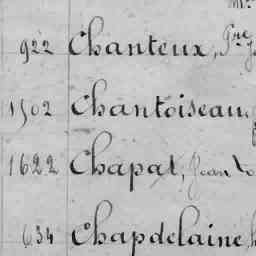 922 Chanteux, Pre
1502 Chantoiseau
1622 Chapat, Jean
634 Chapdelaine